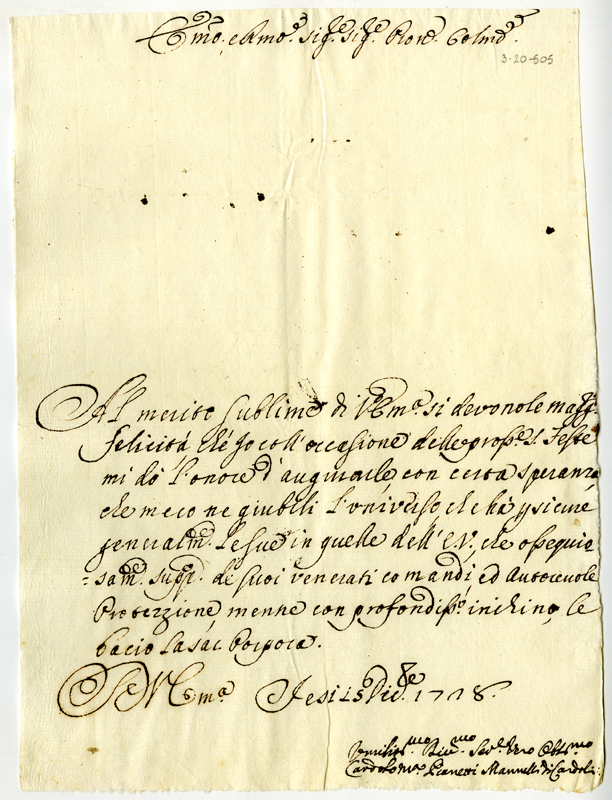 Emo. e Rmo. Sig.re Sig.re Pron. Colmo.
3-20-505
Al merito sublime di V. Emа. si devono le magg.
felicità ch'Io coll'occasione delle pross.e S. Feste
mi dò l'onore d'augurarle con certa speranza
che meco ne giubili l'universo, che hà p sicure
generalm.e le sue in quelle dell'E.V. che ossequio
=sam.e suppl. de suoi venerati comandi ed autorevole
Protezzione, mentre con profondiss.o inchino le
bacio la sac. Porpora.
Jesi 15 Dic.bre 1728.
Vmiliss.mo Serv.e vero Obl.mo
Pianetti Mannelli